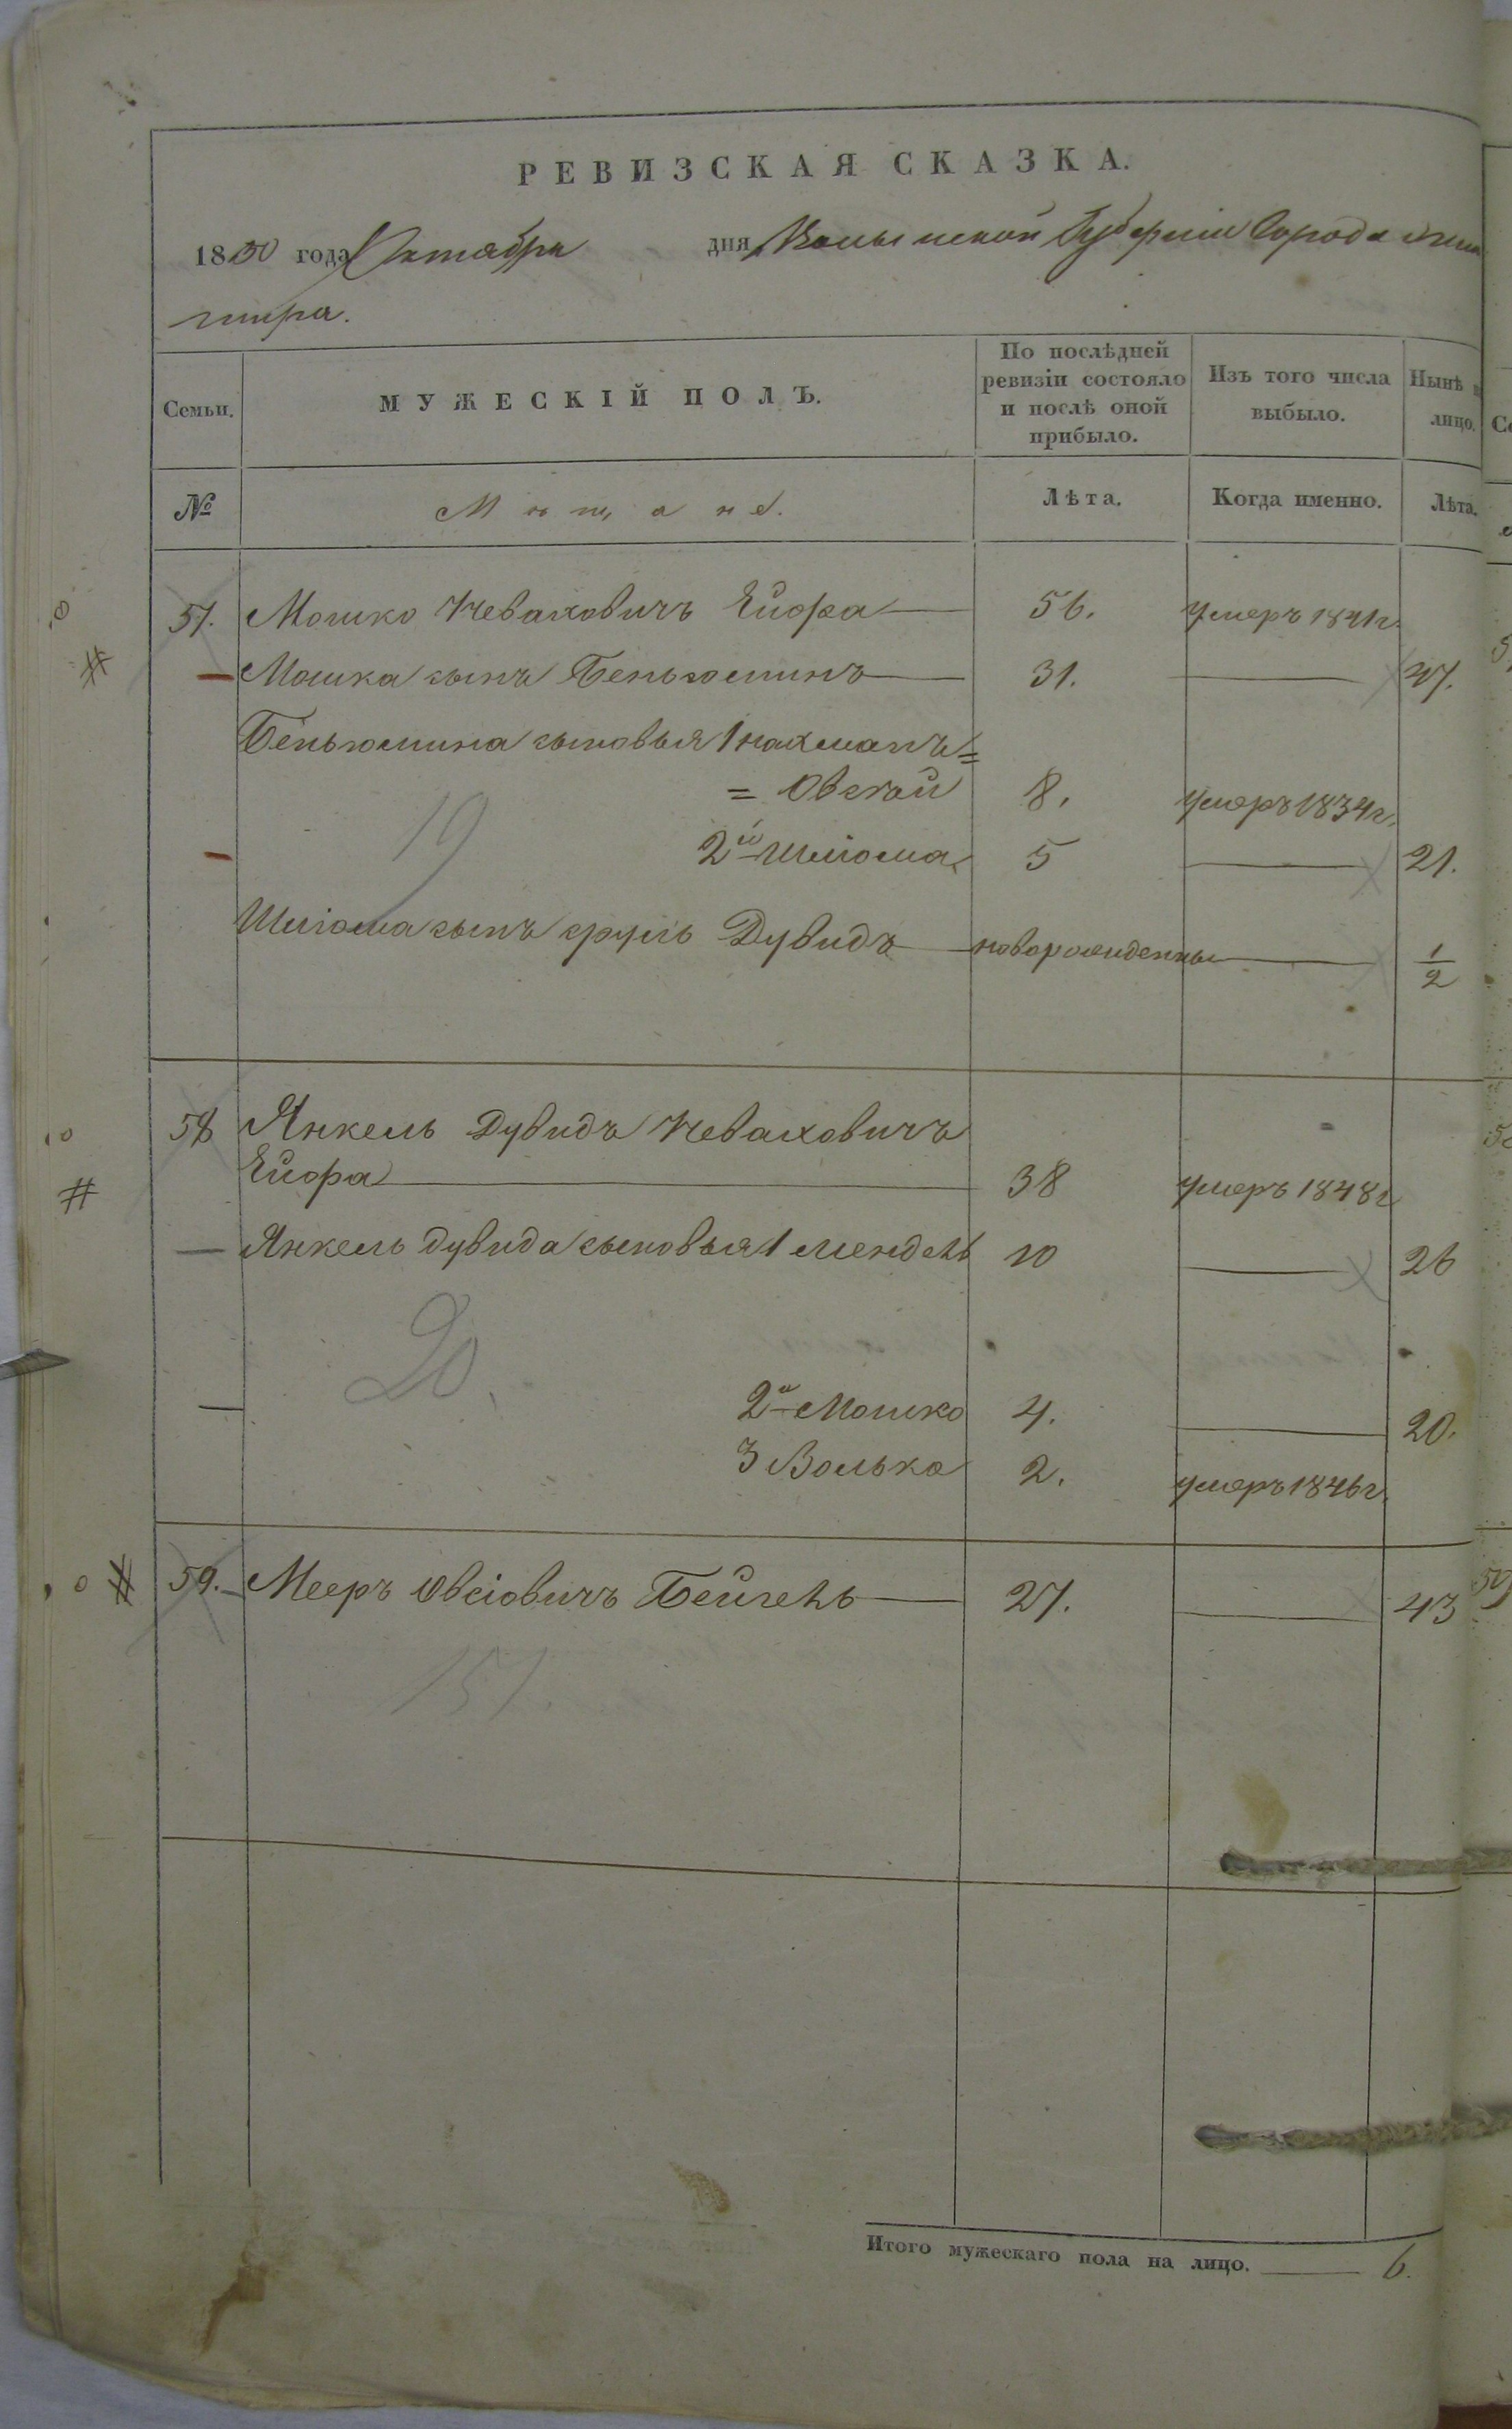 РЕВИЗСКАЯ СКАЗКА.
1850 года Октября дня Волынской Губерніи Города Жи
томира.
Семьи.
МУЖЕСКІЙ ПОЛЪ.
По послѣдней ревизіи состояло и послѣ оной прибыло.
Изъ того числа выбыло.
Нынѣ
лицо.
№ Мѣщане. Лѣта. Когда именно. Лѣта.
57. Мошко Неваховичъ Ейфра 56. умеръ 1841г.
Мошка сынъ Беньюминъ 31. 47.
Беньюмина сыновья 1 Нахманъ=
= Овсѣй 8. умеръ 1834г.
2й Шліома 5 21.
19
Шліома сынъ Сруль Дувидъ новорожденны 1/2
58 Янкель Дувидъ Неваховичъ
Ейфра 38 умеръ 1848г
Янкель Дувида сыновья 1 Мендель 10 26
20.
2й Мошко 4. 20.
3 Волько 2. умеръ 1846г.
59. Мееръ Овсіовичъ Бейгель 27. 43
151.
Итого мужескаго пола на лицо. 6.